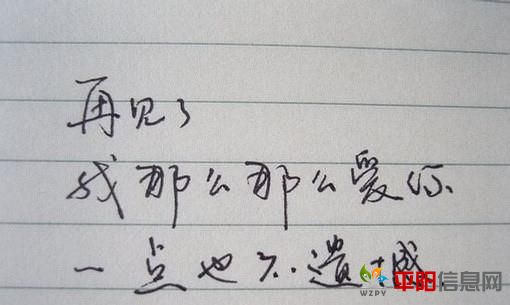 再见了
我那么那么爱你
一点也不遗憾
平阳信息网
WZPY